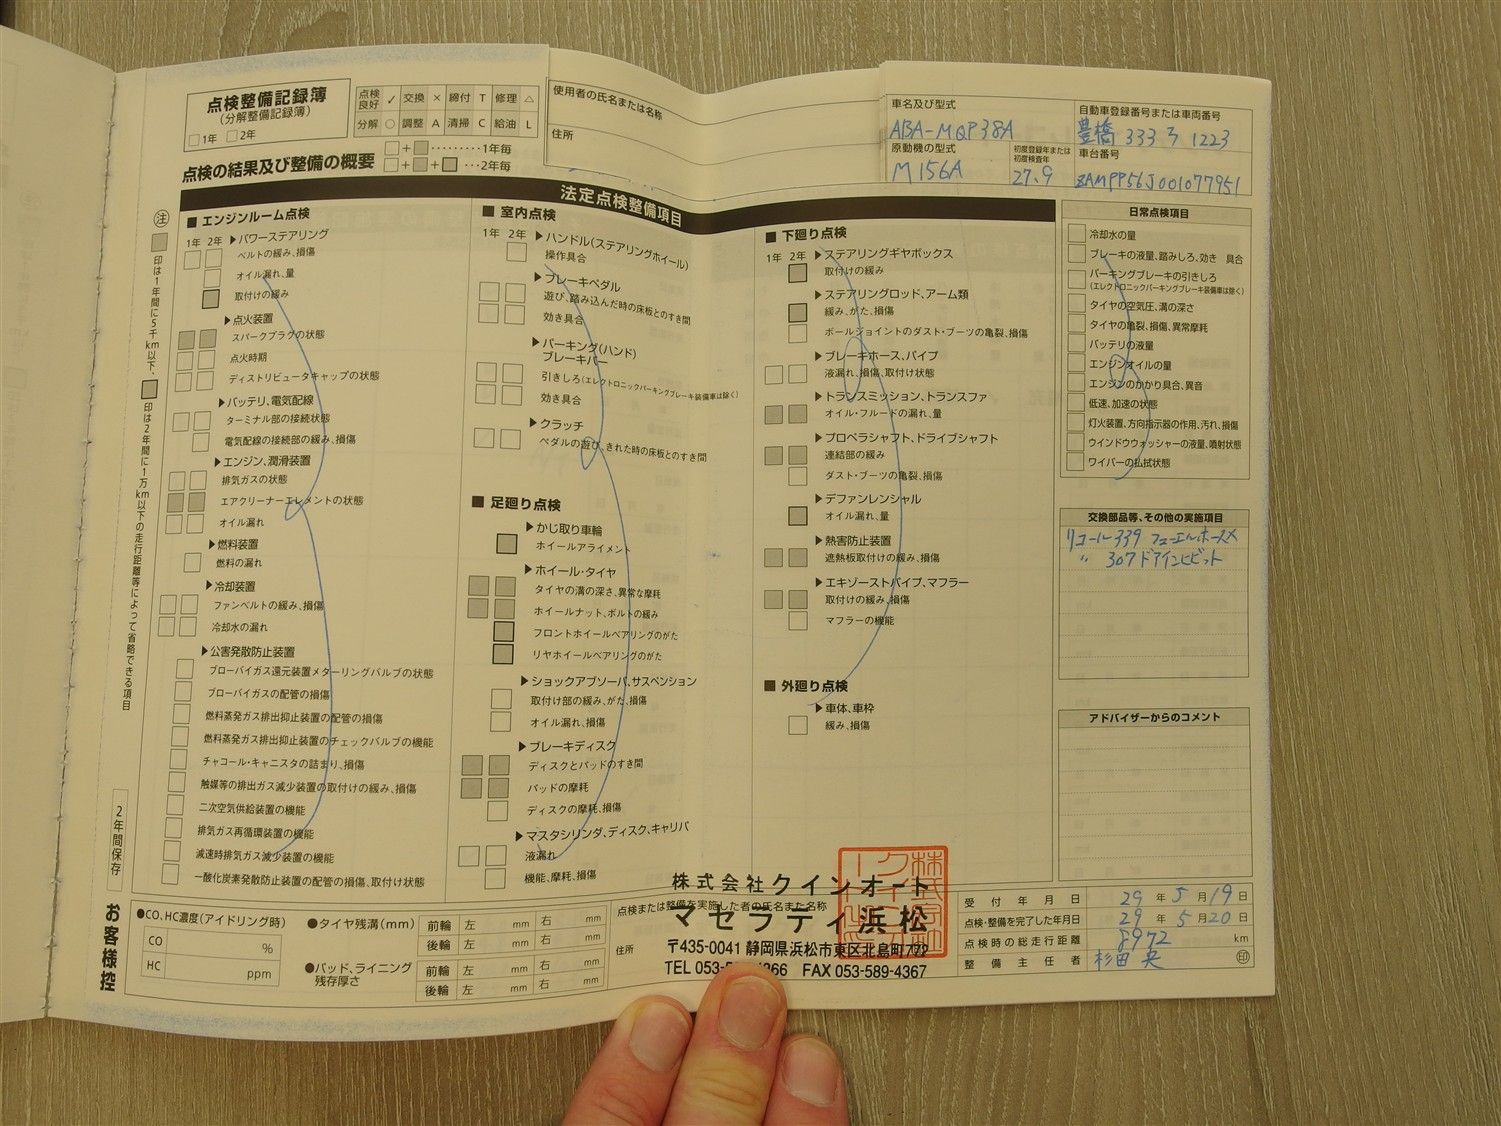 点検整備記録簿
(分解整備記録簿)
□1年 □2年
点検良好 ✓ 交換 × 締付 T 修理 △
分解 ○ 調整 A 清掃 C 給油 L
□+□ ········· 1年毎
□+□+□ ··· 2年毎
点検の結果及び整備の概要
使用者の氏名または名称
住所
車名及び型式
ABA-MQP38A
自動車登録番号または車両番号
豊橋 333 ラ 1223
原動機の型式
M156A
初度登録年または初度検査年
27.9
車台番号
ZAMPP56J001077951
法定点検整備項目
注
印は1年間に5千km以下、
印は2年間に1万km以下の走行距離等によって省略できる項目
2年間保存
お客様控
■ エンジンルーム点検
1年 2年
▶パワーステアリング
ベルトの緩み、損傷
オイル漏れ、量
取付けの緩み
▶点火装置
スパークプラグの状態
点火時期
ディストリビュータキャップの状態
▶バッテリ、電気配線
ターミナル部の接続状態
電気配線の接続部の緩み、損傷
▶エンジン、潤滑装置
排気ガスの状態
エアクリーナーエレメントの状態
オイル漏れ
▶燃料装置
燃料の漏れ
▶冷却装置
ファンベルトの緩み、損傷
冷却水の漏れ
▶公害発散防止装置
ブローバイガス還元装置メターリングバルブの状態
ブローバイガスの配管の損傷
燃料蒸発ガス排出抑止装置の配管の損傷
燃料蒸発ガス排出抑止装置のチェックバルブの機能
チャコール・キャニスタの詰まり、損傷
触媒等の排出ガス減少装置の取付けの緩み、損傷
二次空気供給装置の機能
排気ガス再循環装置の機能
減速時排気ガス減少装置の機能
一酸化炭素発散防止装置の配管の損傷、取付け状態
■ 室内点検
1年 2年
▶ハンドル(ステアリングホイール)
操作具合
▶ブレーキペダル
遊び、踏み込んだ時の床板とのすき間
効き具合
▶パーキング(ハンド)
ブレーキバー
引きしろ(エレクトロニックパーキングブレーキ装備車は除く)
効き具合
▶クラッチ
ペダルの遊び、きれた時の床板とのすき間
■ 足廻り点検
▶かじ取り車輪
ホイールアライメント
▶ホイール・タイヤ
タイヤの溝の深さ、異常な摩耗
ホイールナット、ボルトの緩み
フロントホイールベアリングのがた
リヤホイールベアリングのがた
▶ショックアブソーバ、サスペンション
取付け部の緩み、がた、損傷
オイル漏れ、損傷
▶ブレーキディスク
ディスクとパッドのすき間
パッドの摩耗
ディスクの摩耗、損傷
▶マスタシリンダ、ディスク、キャリパ
液漏れ
機能、摩耗、損傷
■ 下廻り点検
1年 2年
▶ステアリングギヤボックス
取付けの緩み
▶ステアリングロッド、アーム類
緩み、がた、損傷
ボールジョイントのダスト・ブーツの亀裂、損傷
▶ブレーキホース、パイプ
液漏れ、損傷、取付け状態
▶トランスミッション、トランスファ
オイル・フルードの漏れ、量
▶プロペラシャフト、ドライブシャフト
連結部の緩み
ダスト・ブーツの亀裂、損傷
▶デファンレンシャル
オイル漏れ、量
▶熱害防止装置
遮熱板取付けの緩み、損傷
▶エキゾーストパイプ、マフラー
取付けの緩み、損傷
マフラーの機能
■ 外廻り点検
▶車体、車枠
緩み、損傷
日常点検項目
冷却水の量
ブレーキの液量、踏みしろ、効き 具合
パーキングブレーキの引きしろ
(エレクトロニックパーキングブレーキ装備車は除く)
タイヤの空気圧、溝の深さ
タイヤの亀裂、損傷、異常摩耗
バッテリの液量
エンジンオイルの量
エンジンのかかり具合、異音
低速、加速の状態
灯火装置、方向指示器の作用、汚れ、損傷
ウインドウウォッシャーの液量、噴射状態
ワイパーの払拭状態
交換部品等、その他の実施項目
リコール339 フューエルホースX
〃 307 ドアインヒビット
アドバイザーからのコメント
●CO、HC濃度(アイドリング時)
CO %
HC ppm
●タイヤ残溝(mm)
前輪 左 mm 右 mm
後輪 左 mm 右 mm
●パッド、ライニング残存厚さ
前輪 左 mm 右 mm
後輪 左 mm 右 mm
点検または整備を実施した者の氏名また名称
住所
株式会社クインオート
マセラティ浜松
〒435-0041 静岡県浜松市東区北島町772
TEL 053- 266 FAX 053-589-4367
受付年月日 29年5月19日
点検・整備を完了した年月日 29年5月20日
点検時の総走行距離 8972 km
整備主任者 杉田 央 印